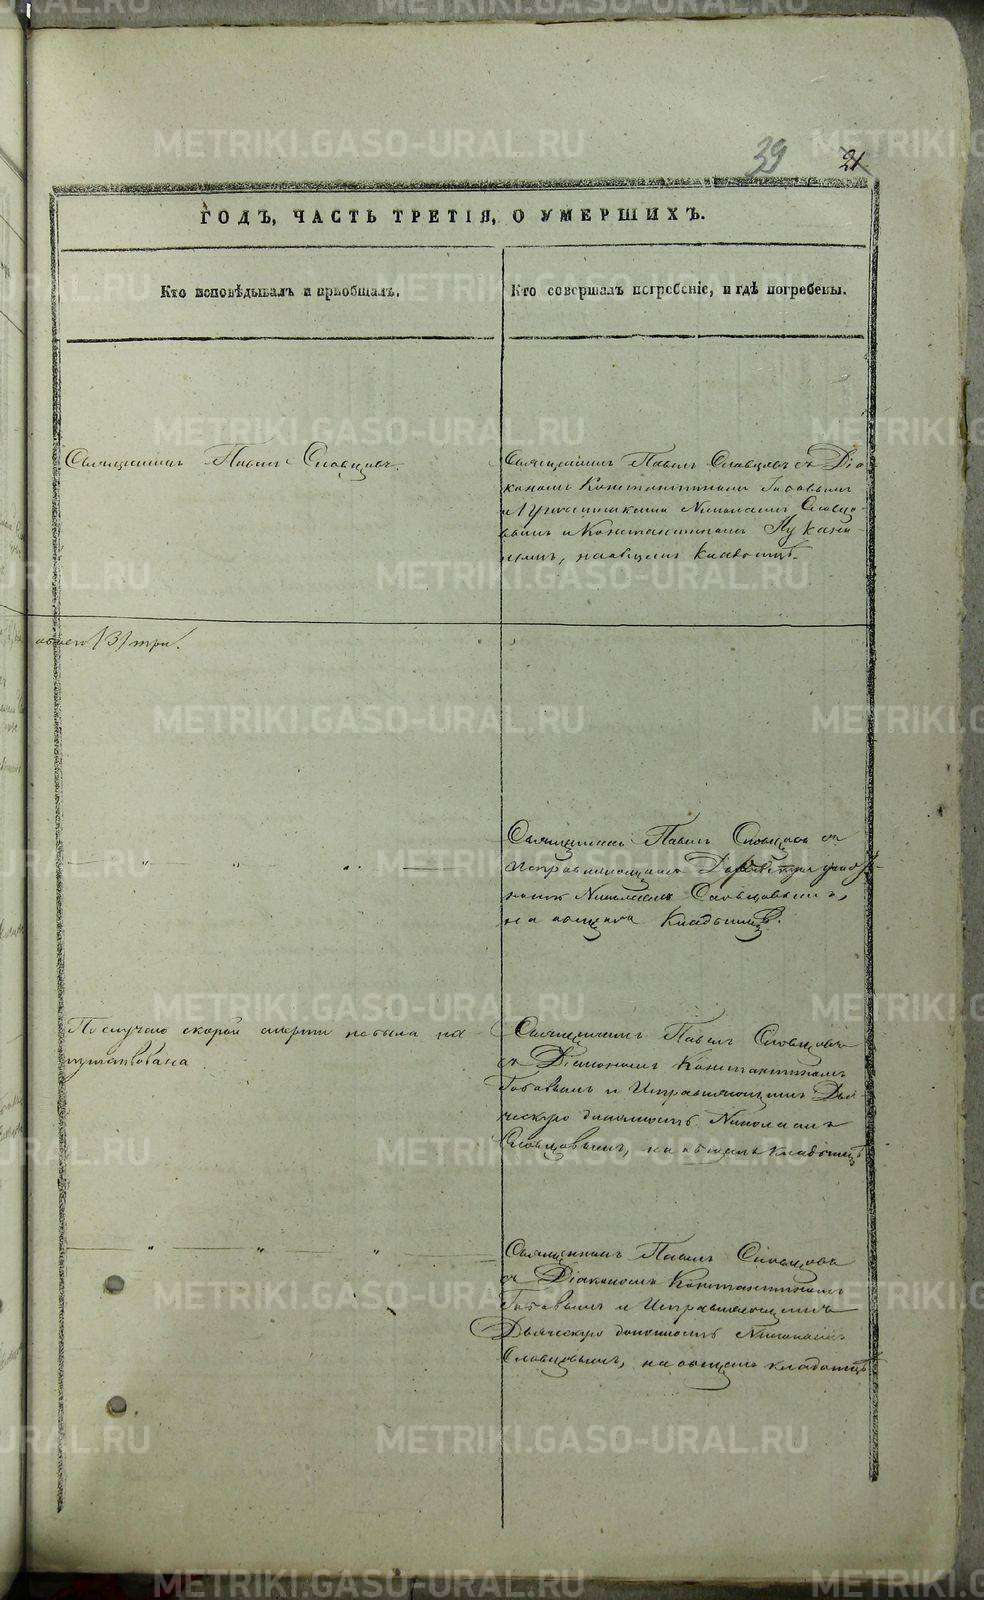 39 21
ГОДЪ, ЧАСТЬ ТРЕТІЯ, О УМЕРШИХЪ.
Кто исповѣдывалъ и пріобщалъ.
Кто совершалъ погребеніе, и гдѣ погребены.
Священникъ Павелъ Словцовъ.
Священникъ Павелъ Словцовъ съ Діа
кономъ Константиномъ
и Николаемъ Словцо-
вымъ и Константиномъ Лукани-
нымъ, на общемъ кладбищѣ.
/3/ три.
Священникъ Павелъ Словцовъ съ
Исправляющимъ
Николаемъ Словцовымъ,
на общемъ Кладбищѣ.
По случаю скорой смерти не была на
путствована
Священникъ Павелъ Словцовъ
съ Діакономъ Константиномъ
и Исправляющимъ Дья-
ческую должность Николаемъ
Словцовымъ, на общемъ кладбищѣ
Священникъ Павелъ Словцовъ
съ Діакономъ Константиномъ
и Исправляющимъ
Дьяческую должность Николаемъ
Словцовымъ, на общемъ кладбищѣ
METRIKI.GASO-URAL.RU